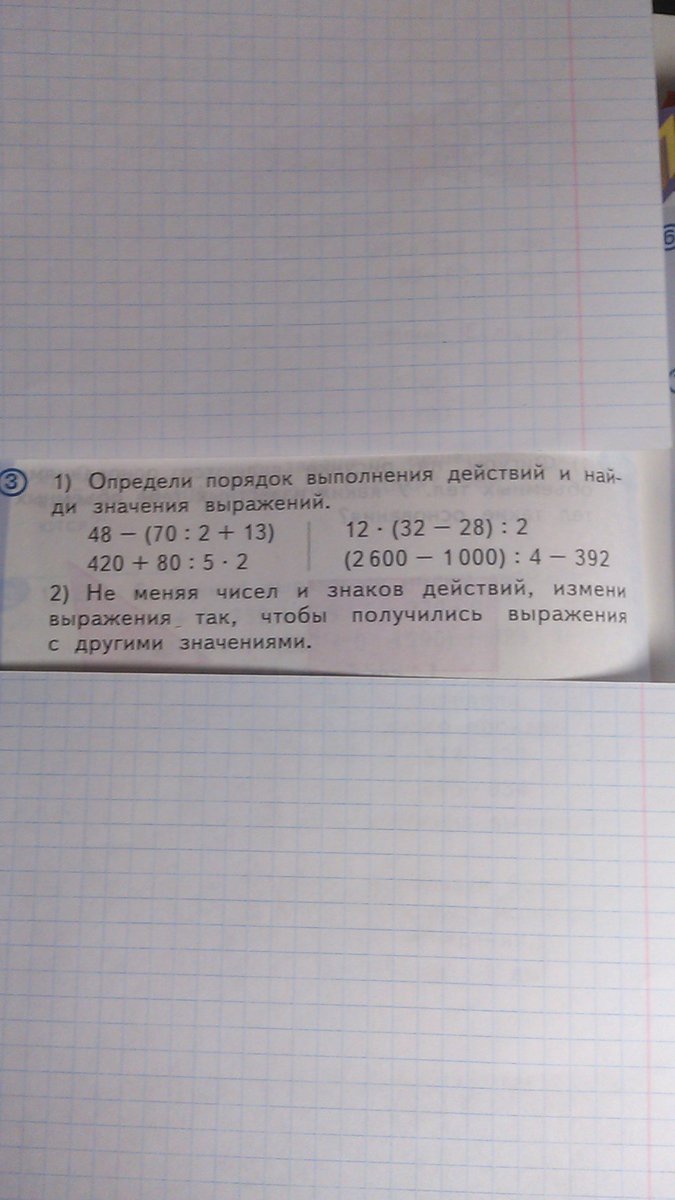 3 1) Определи порядок выполнения действий и най-
ди значения выражений.
48 − (70 : 2 + 13) 12 · (32 − 28) : 2
420 + 80 : 5 · 2 (2 600 − 1 000) : 4 − 392
2) Не меняя чисел и знаков действий, измени
выражения так, чтобы получились выражения
с другими значениями.